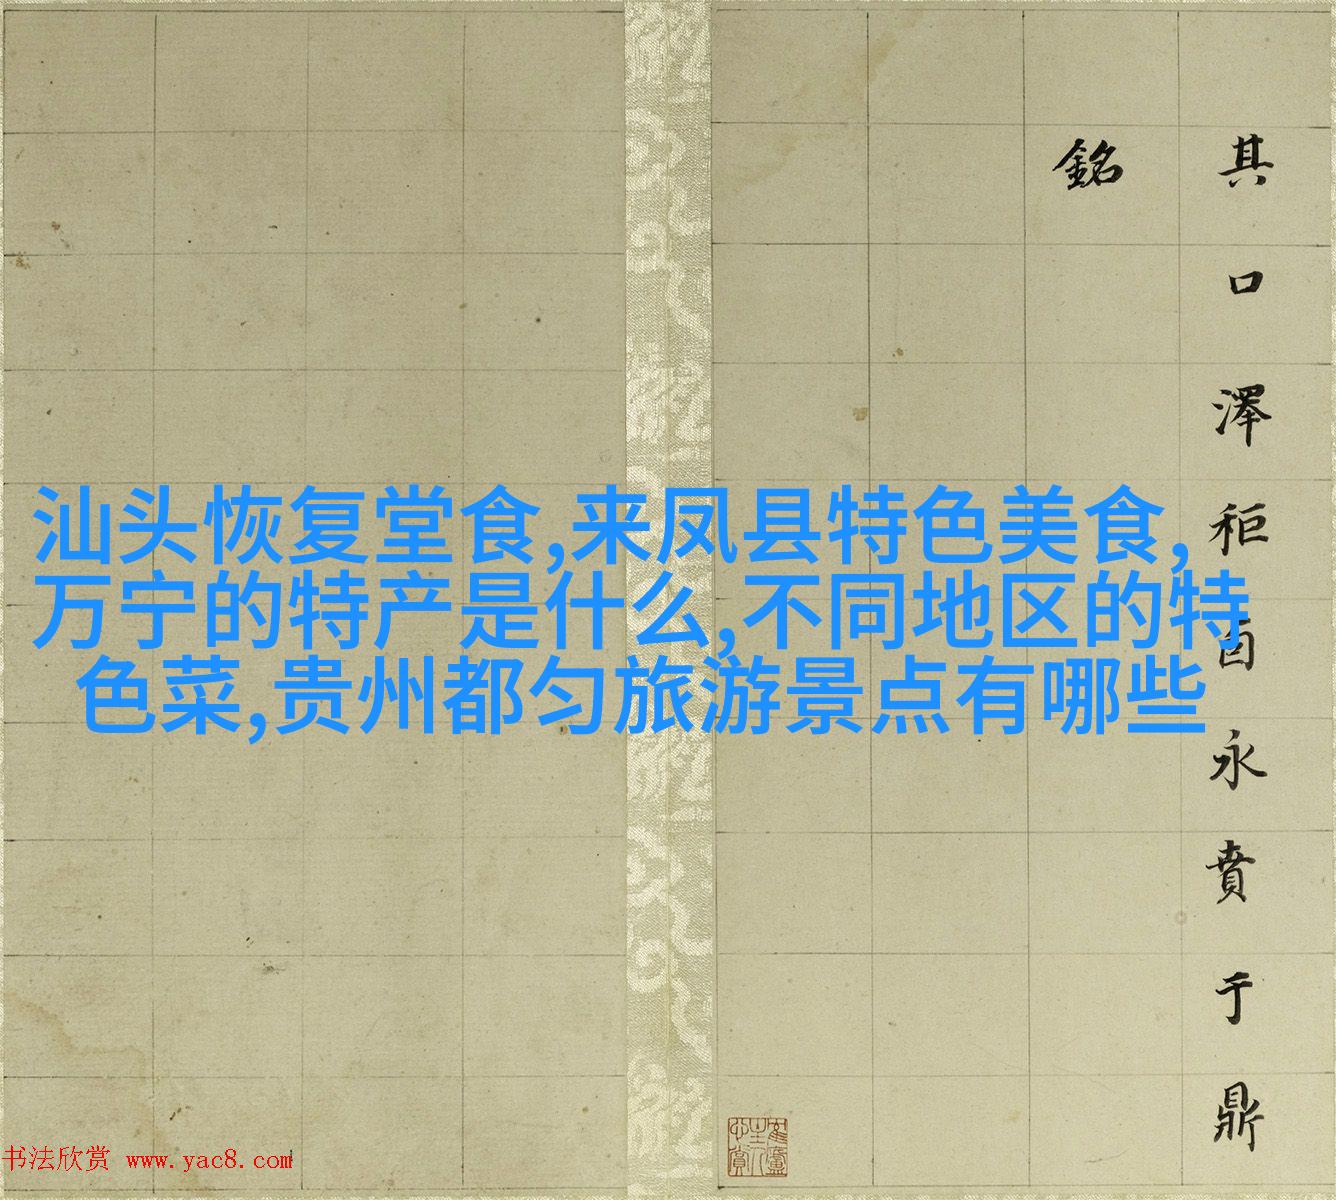 其口澤秬卣永賁于鼎
銘
汕头恢复堂食,来凤县特色美食,
万宁的特产是什么,不同地区的特
色菜,贵州都匀旅游景点有哪些
书法欣赏 www.yac8.com